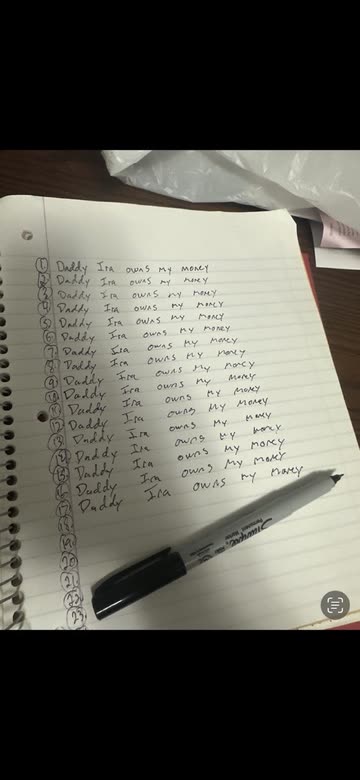 1 Daddy Ira owns my money
2 Daddy Ira owns my money
3 Daddy Ira owns my money
4 Daddy Ira owns my money
5 Daddy Ira owns my money
6 Daddy Ira owns my money
7 Daddy Ira owns my money
8 Daddy Ira owns my money
9 Daddy Ira owns my money
10 Daddy Ira owns my money
11 Daddy Ira owns my money
12 Daddy Ira owns my money
13 Daddy Ira owns my money
14 Daddy Ira owns my money
15 Daddy Ira owns my money
16 Daddy Ira owns my money
17 Daddy Ira owns my money
18
19
20
21
22
23
Sharpie